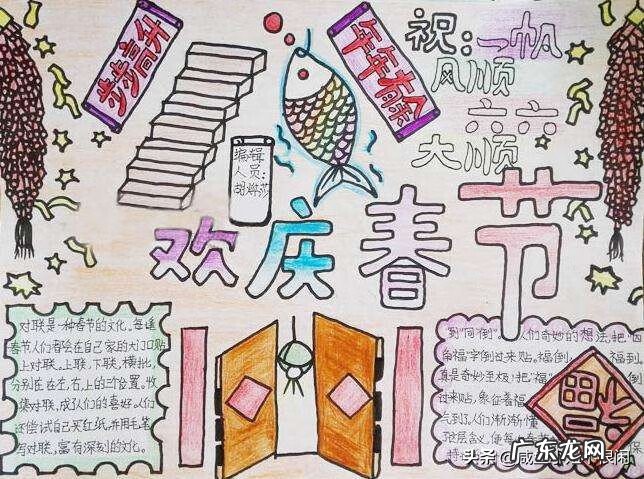 步步高升
年年有余
祝：一帆
风顺
六六
大顺
编辑
人员：
欢庆春节
对联是一种春节的文化，每逢
春节人们都会在自己家的大门口贴
上对联。上联，下联，横批，
分别在左，右，上的三个位置。收
集对联，成了人们的喜好。人们
还尝试自己买红纸，并用毛笔
写对联，富有深刻的文化。
到"同倒"。人们奇妙的想法，把"四
角福"字倒过来贴，福倒，福到，
真是奇妙至极！把"福 倒
过来贴，象征着福
气到了，人们渐渐懂
特 保
福
头条
广东龙网